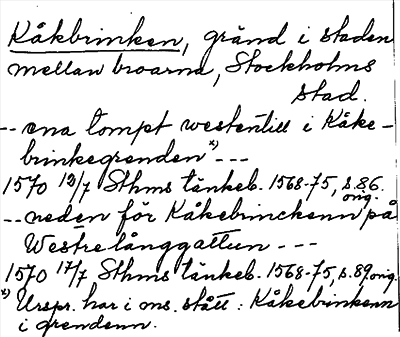 Kåkbrinken, gränd i staden
mellan broarna, Stockholms
stad.
-- ena tompt westentill i Kåke-
brinkegrenden x) ---
1570 13/7 Sthms tänkeb. 1568-75, s. 86.
orig.
-- neden för Kåkebrinckenn på
Westre långgattun ---
1570 17/7 Sthms tänkeb. 1568-75, s. 89 orig.
x) Urspr. har i ms. stått: Kåkebrinkenn
i grendenn.